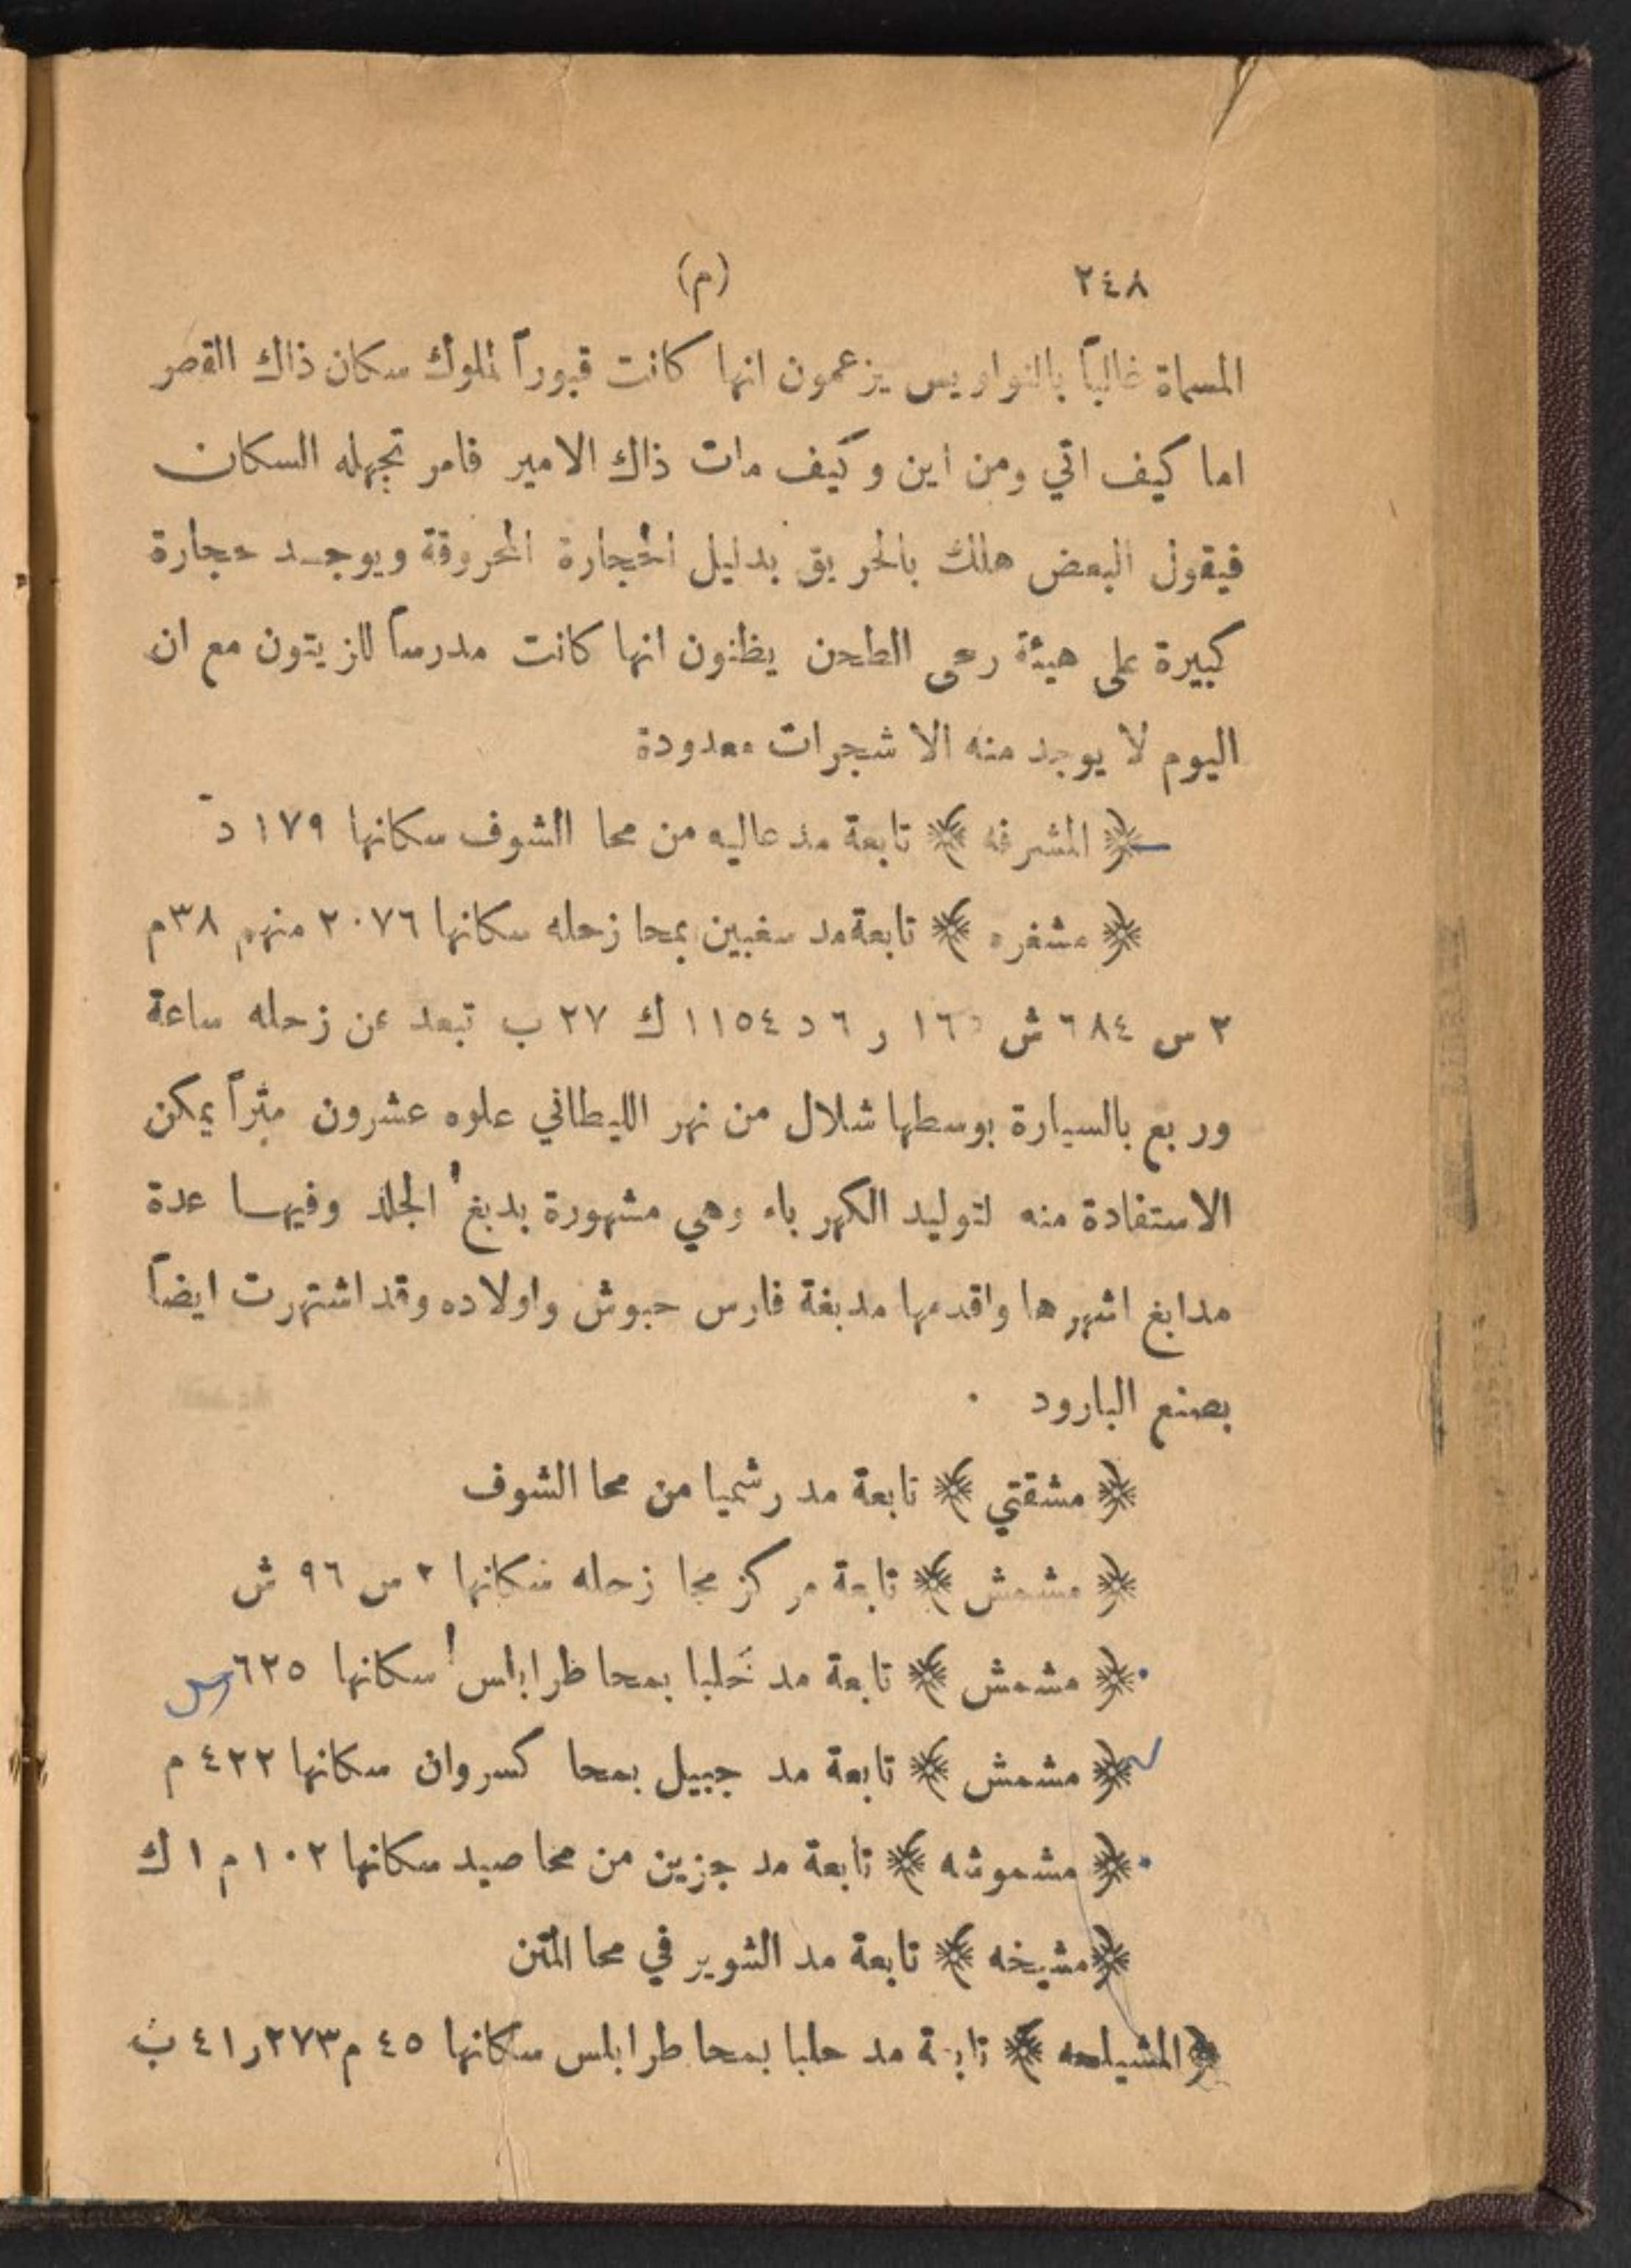 ٢٤٨ (م)
المسماة غالباً بالنواويس يزعمون انها كانت قبوراً لملوك سكان ذاك القصر
اما كيف اتي ومن اين وكيف مات ذاك الامير فامر تجهله السكان
فيقول البعض هلك بالحريق بدليل الحجارة المحروقة ويوجد حجارة
كبيرة على هيئة رحى الطحن يظنون انها كانت مدرساً للزيتون مع ان
اليوم لا يوجد منه الا شجرات معدودة
﴿ المشرفه ﴾ تابعة مد عاليه من محا الشوف سكانها ١٧٩ د
﴿ مشغره ﴾ تابعة مد سغبين بمحا زحله سكانها ٢٠٧٦ منهم ٣٨ م
٢ س ٦٨٤ ش ١٦٥ ر ٦ د ١١٥٤ ك ٢٧ ب تبعد عن زحله ساعة
وربع بالسيارة بوسطها شلال من نهر الليطاني علوه عشرون متراً يمكن
الاستفادة منه لتوليد الكهرباء وهي مشهورة بدبغ الجلد وفيها عدة
مدابغ اشهرها واقدمها مدبغة فارس حبوش واولاده وقد اشتهرت ايضاً
بصنع البارود .
﴿ مشقتي ﴾ تابعة مد رشميا من محا الشوف
﴿ مشمش ﴾ تابعة مركز محا زحله سكانها ٢ س ٩٦ ش
﴿ مشمش ﴾ تابعة مد حلبا بمحا طرابلس سكانها ٦٢٥ س
﴿ مشمش ﴾ تابعة مد جبيل بمحا كسروان سكانها ٤٢٢ م
﴿ مشموشه ﴾ تابعة مد جزين من محا صيد سكانها ١٠٢ م ١ ك
﴿ مشيخه ﴾ تابعة مد الشوير في محا المتن
﴿ المشيلحه ﴾ تابعة مد حلبا بمحا طرابلس سكانها ٤٥ م ٢٧٣ ر ٤١ ب